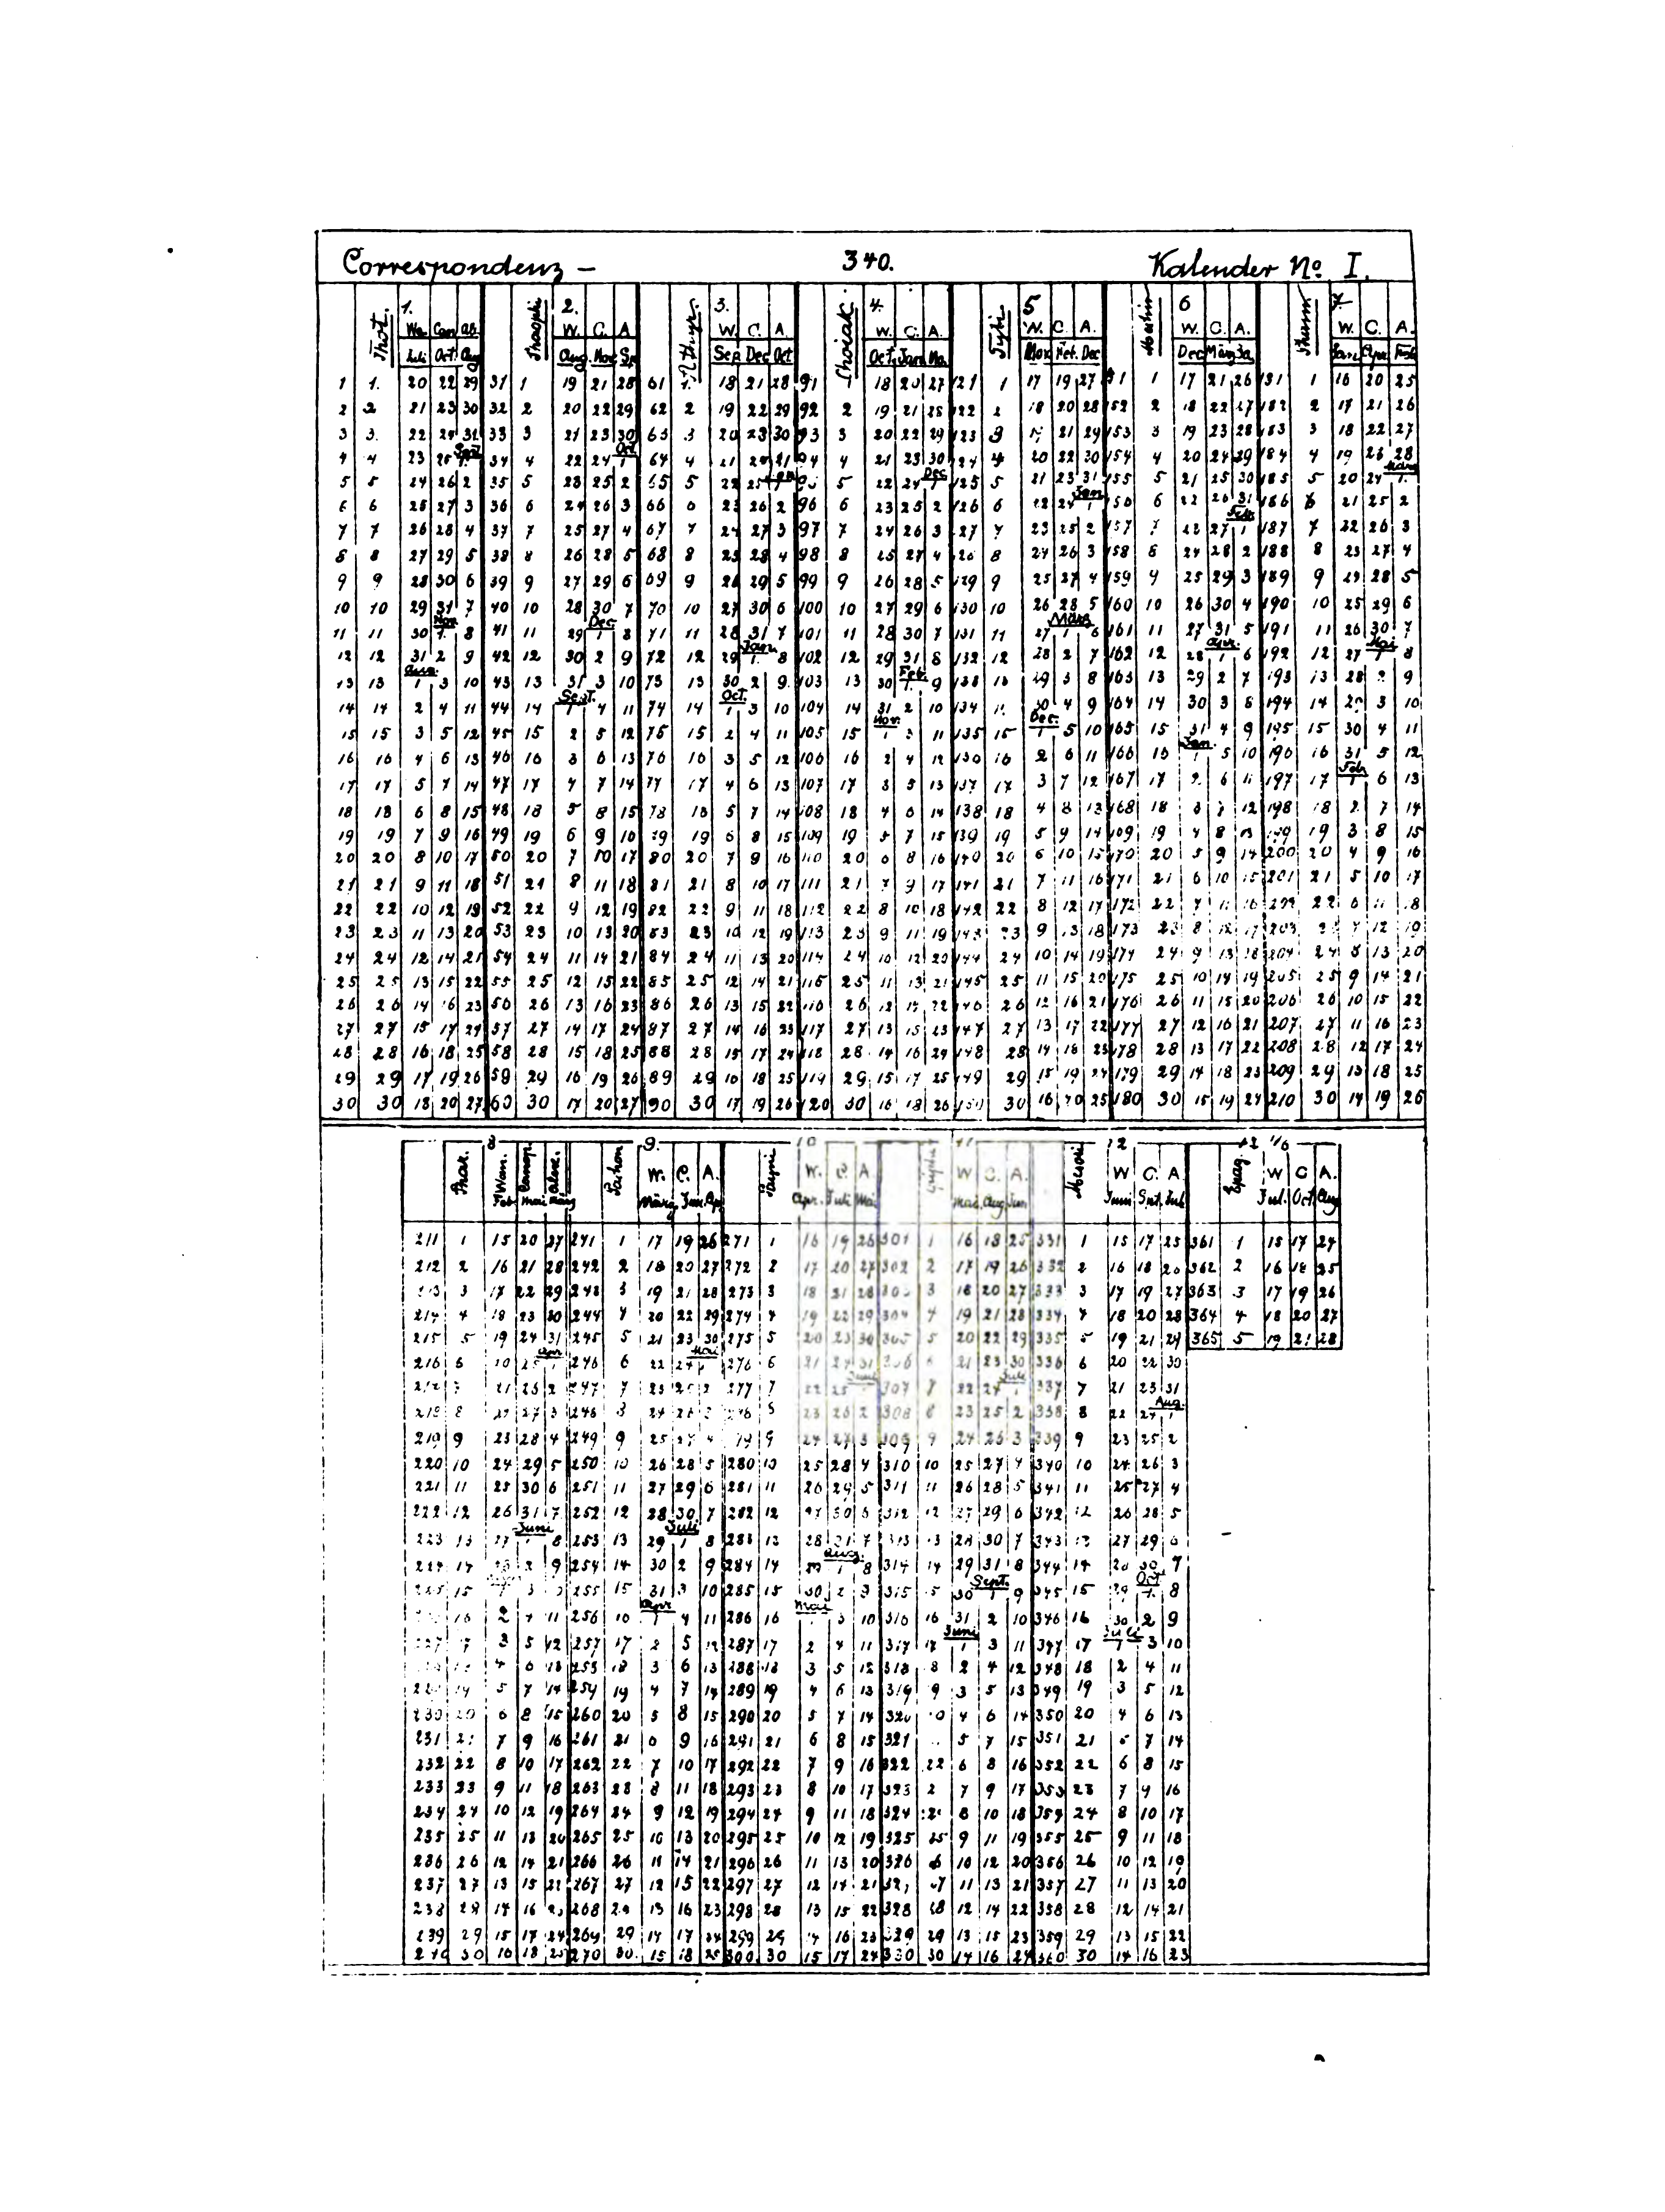 Correspondenz – 340. Kalender No I.
1. 2. 3. 4. 5 6 7.
Thot. Thaophi Athyr. Choiak. Tybi
Wa. Can. W. C. A W. C. A. W. C. A. W. C. A. W. C. A. W. C. A.
Juli Oct. Aug Aug. Nov Sp. Sep Dec Oct Oct. Jan. No. Nov Feb. Dec Dec März Ja. Jan. Apr. Feb
1 1. 20 22 29 31 1 19 21 28 61 1. 18 21 28 91 18 20 27 121 1 17 19 27 1 17 21 26 1 16 20 25
2 2 21 23 30 32 2 20 22 29 62 2 19 22 29 92 2 19 21 28 122 2 18 20 28 152 2 18 22 27 182 2 17 21 26
3 3. 22 24 31 33 3 21 23 30 63 3 20 23 30 93 3 20 22 29 123 3 21 29 153 3 19 23 28 183 3 18 22 27
Sept. Oct. Dec. März
4 4 23 25 1. 34 4 22 24 1 64 4 21 24 31 94 4 21 23 30 124 4 20 22 30 154 4 20 24 29 184 4 19 23 28
5 5 24 26 2 35 5 23 25 2 65 5 22 25 5 22 24 1 125 5 21 23 31 155 5 21 25 30 185 5 20 24 1.
Jan. Feb.
6 6 25 27 3 36 6 24 26 3 66 6 23 26 2 96 6 23 25 2 126 6 22 24 1 6 22 26 31 186 6 21 25 2
7 7 26 28 4 37 7 25 27 4 67 7 24 27 3 97 7 24 26 3 127 7 23 25 2 157 7 27 1 187 7 22 26 3
8 8 27 29 5 38 8 26 28 5 68 8 25 28 4 98 8 25 27 4 8 24 26 3 158 8 24 28 2 188 8 23 27 4
9 9 28 30 6 39 9 27 29 6 69 9 26 29 5 99 9 26 28 5 129 9 25 27 4 159 9 25 29 3 189 9 28 5
10 10 29 31 7 40 10 28 30 7 70 10 27 30 6 100 10 27 29 6 130 10 26 28 5 160 10 26 30 4 190 10 25 29 6
Nov. Dec. März Mai
11 11 30 1. 8 41 11 29 1 8 71 11 28 31 7 101 11 28 30 7 131 11 27 1 6 161 11 27 31 5 191 11 26 30 7
Jan. Apr.
12 12 31 2 9 42 12 30 2 9 72 12 29 1. 8 102 12 29 31 8 132 12 28 2 7 162 12 28 1 6 192 12 27 1 8
Aug. Feb.
13 13 1 3 10 43 13 31 3 10 73 13 30 2 9 103 13 30 1. 9 13 29 3 8 163 13 29 2 7 193 13 28 2 9
Sept. Oct.
14 14 2 4 11 44 14 1 4 11 74 14 1 3 10 104 14 31 2 10 134 30 4 9 164 14 30 3 8 194 14 29 3 10
Nov. Dec.
15 15 3 5 12 45 15 2 5 12 75 15 2 4 11 105 15 1 3 11 135 15 1 5 10 165 15 31 4 9 195 15 30 4 11
Jan.
16 16 4 6 13 46 16 3 6 13 76 16 3 5 12 106 16 2 4 12 16 2 6 11 166 16 1 5 10 196 16 31 5 12
Feb.
17 17 5 7 14 47 17 4 7 14 77 17 4 6 13 107 17 3 5 13 137 17 3 7 12 167 17 2 6 11 197 17 1 6 13
18 18 6 8 15 48 18 5 8 15 78 18 5 7 14 108 18 4 6 14 138 18 4 8 13 168 18 3 7 12 198 18 2 7 14
19 19 7 9 16 49 19 6 9 16 79 19 6 8 15 109 19 5 7 15 139 19 5 9 14 169 19 4 8 13 19 3 8 15
20 20 8 10 17 50 20 7 10 17 80 20 7 9 16 110 20 6 8 16 140 20 6 10 15 170 20 5 9 14 200 20 4 9 16
21 21 9 11 18 51 21 8 11 18 81 21 8 10 17 111 21 7 9 17 141 21 7 11 16 171 21 6 10 15 201 21 5 10 17
22 22 10 12 19 52 22 9 12 19 82 22 9 11 18 112 22 8 10 18 142 22 8 12 17 172 22 7 11 16 202 22 6 11 18
23 23 11 13 20 53 23 10 13 20 83 23 10 12 19 113 23 9 11 19 143 23 9 13 18 173 23 8 12 17 203 7 12 19
24 24 12 14 21 54 24 11 14 21 84 24 11 13 20 114 24 10 12 20 144 24 10 14 19 174 24 9 13 18 204 24 8 13 20
25 25 13 15 22 55 25 12 15 22 85 25 12 14 21 115 25 11 13 21 145 25 11 15 20 175 25 10 14 19 205 25 9 14 21
26 26 14 16 23 56 26 13 16 23 86 26 13 15 22 116 26 12 14 22 146 26 12 16 21 176 26 11 15 20 206 26 10 15 22
27 27 15 17 24 57 27 14 17 24 87 27 14 16 23 117 27 13 15 23 147 27 13 17 22 177 27 12 16 21 207 27 11 16 23
28 28 16 18 25 58 28 15 18 25 88 28 15 17 24 118 28 14 16 24 148 28 14 18 23 178 28 13 17 22 208 28 12 17 24
29 29 17 19 26 59 29 16 19 26 89 29 16 18 25 119 29 15 17 25 149 29 15 19 24 179 29 14 18 23 209 29 13 18 25
30 30 18 20 27 60 30 17 20 27 90 30 17 19 26 120 30 16 18 26 150 30 16 20 25 180 30 15 19 24 210 30 14 19 26
8 9. 10 11 12
Phar. Wan. Canop. Alex. Pachon W. C. A. Payni W. C. A W C. A. W C. A. Epag. W C A.
Feb. Mai März März Jun. Ap. Apr. Juli Mai Mai Aug Jun. Juni Spt. Juli Jul. Oct. Aug
211 1 15 20 27 241 1 17 19 26 271 1 16 19 26 301 1 16 18 25 331 1 15 17 25 361 1 15 17 24
212 2 16 21 28 242 2 18 20 27 272 2 17 20 27 302 2 17 19 26 332 2 16 18 26 362 2 16 18 25
3 17 22 29 243 3 19 21 28 273 3 18 21 28 303 3 18 20 27 333 3 17 19 27 363 3 17 19 26
214 4 18 23 30 244 4 20 22 29 274 4 19 22 29 304 4 19 21 28 334 4 18 20 28 364 4 18 20 27
215 5 19 24 31 245 5 21 23 30 275 5 20 23 30 305 5 20 22 29 335 5 19 21 29 365 5 19 21 28
Apr. Mai
216 6 25 1 246 6 22 24 276 6 21 24 31 21 23 30 336 6 20 22 30
Juni Juli
7 21 26 2 247 7 23 25 2 277 7 22 25 307 7 22 24 1 337 7 21 23 31
Aug.
218 8 27 3 248 24 26 3 23 26 2 308 8 23 25 2 338 8 22 24 1
219 9 23 28 4 249 9 25 27 4 9 24 27 3 309 9 24 26 3 339 9 23 25 2
220 10 24 29 5 250 10 26 28 5 280 10 25 28 4 310 10 25 27 4 340 10 24 26 3
221 11 25 30 6 251 11 27 29 6 281 11 26 29 5 311 11 26 28 5 341 11 25 27 4
222 12 26 31 7 252 12 28 30 7 282 12 30 6 312 12 27 29 6 342 12 26 28 5
Juni Juli
223 13 27 1 8 253 13 29 1 8 283 13 28 31 7 313 13 28 30 7 343 13 27 29 6
Aug.
224 14 2 9 254 14 30 2 9 284 14 1 8 314 14 29 31 8 344 14 28 30 7
Sept. Oct.
225 15 3 255 15 31 3 10 285 15 30 2 315 30 1 9 345 15 29 1. 8
Apr. Mai
16 2 4 11 256 16 1 4 11 286 16 3 10 316 16 31 2 10 346 16 30 2 9
Juni Juli
3 5 12 257 17 2 5 12 287 17 2 4 11 317 17 1 3 11 347 17 1 3 10
4 6 13 258 18 3 6 13 288 18 3 5 12 318 2 4 12 348 18 2 4 11
5 7 14 259 19 4 7 14 289 19 4 6 13 319 3 5 13 349 19 3 5 12
230 20 6 8 15 260 20 5 8 15 290 20 5 7 14 320 4 6 14 350 20 4 6 13
231 21 7 9 16 261 21 6 9 16 291 21 6 8 15 321 5 7 15 351 21 5 7 14
232 22 8 10 17 262 22 7 10 17 292 22 7 9 16 322 22 6 8 16 352 22 6 8 15
233 23 9 11 18 263 23 8 11 18 293 23 8 10 17 323 7 9 17 353 23 7 9 16
234 24 10 12 19 264 24 9 12 19 294 24 9 11 18 324 8 10 18 354 24 8 10 17
235 25 11 13 20 265 25 10 13 20 295 25 10 12 19 325 25 9 11 19 355 25 9 11 18
236 26 12 14 21 266 26 11 14 21 296 26 11 13 20 326 10 12 20 356 26 10 12 19
237 27 13 15 22 267 27 12 15 22 297 27 12 14 21 11 13 21 357 27 11 13 20
238 28 14 16 23 268 28 13 16 23 298 28 13 15 22 328 28 12 14 22 358 28 12 14 21
239 29 15 17 24 269 29 14 17 24 299 29 14 16 23 329 29 13 15 23 359 29 13 15 22
240 30 16 18 25 270 30 15 18 25 300 30 15 17 24 330 30 14 16 24 360 30 14 16 23